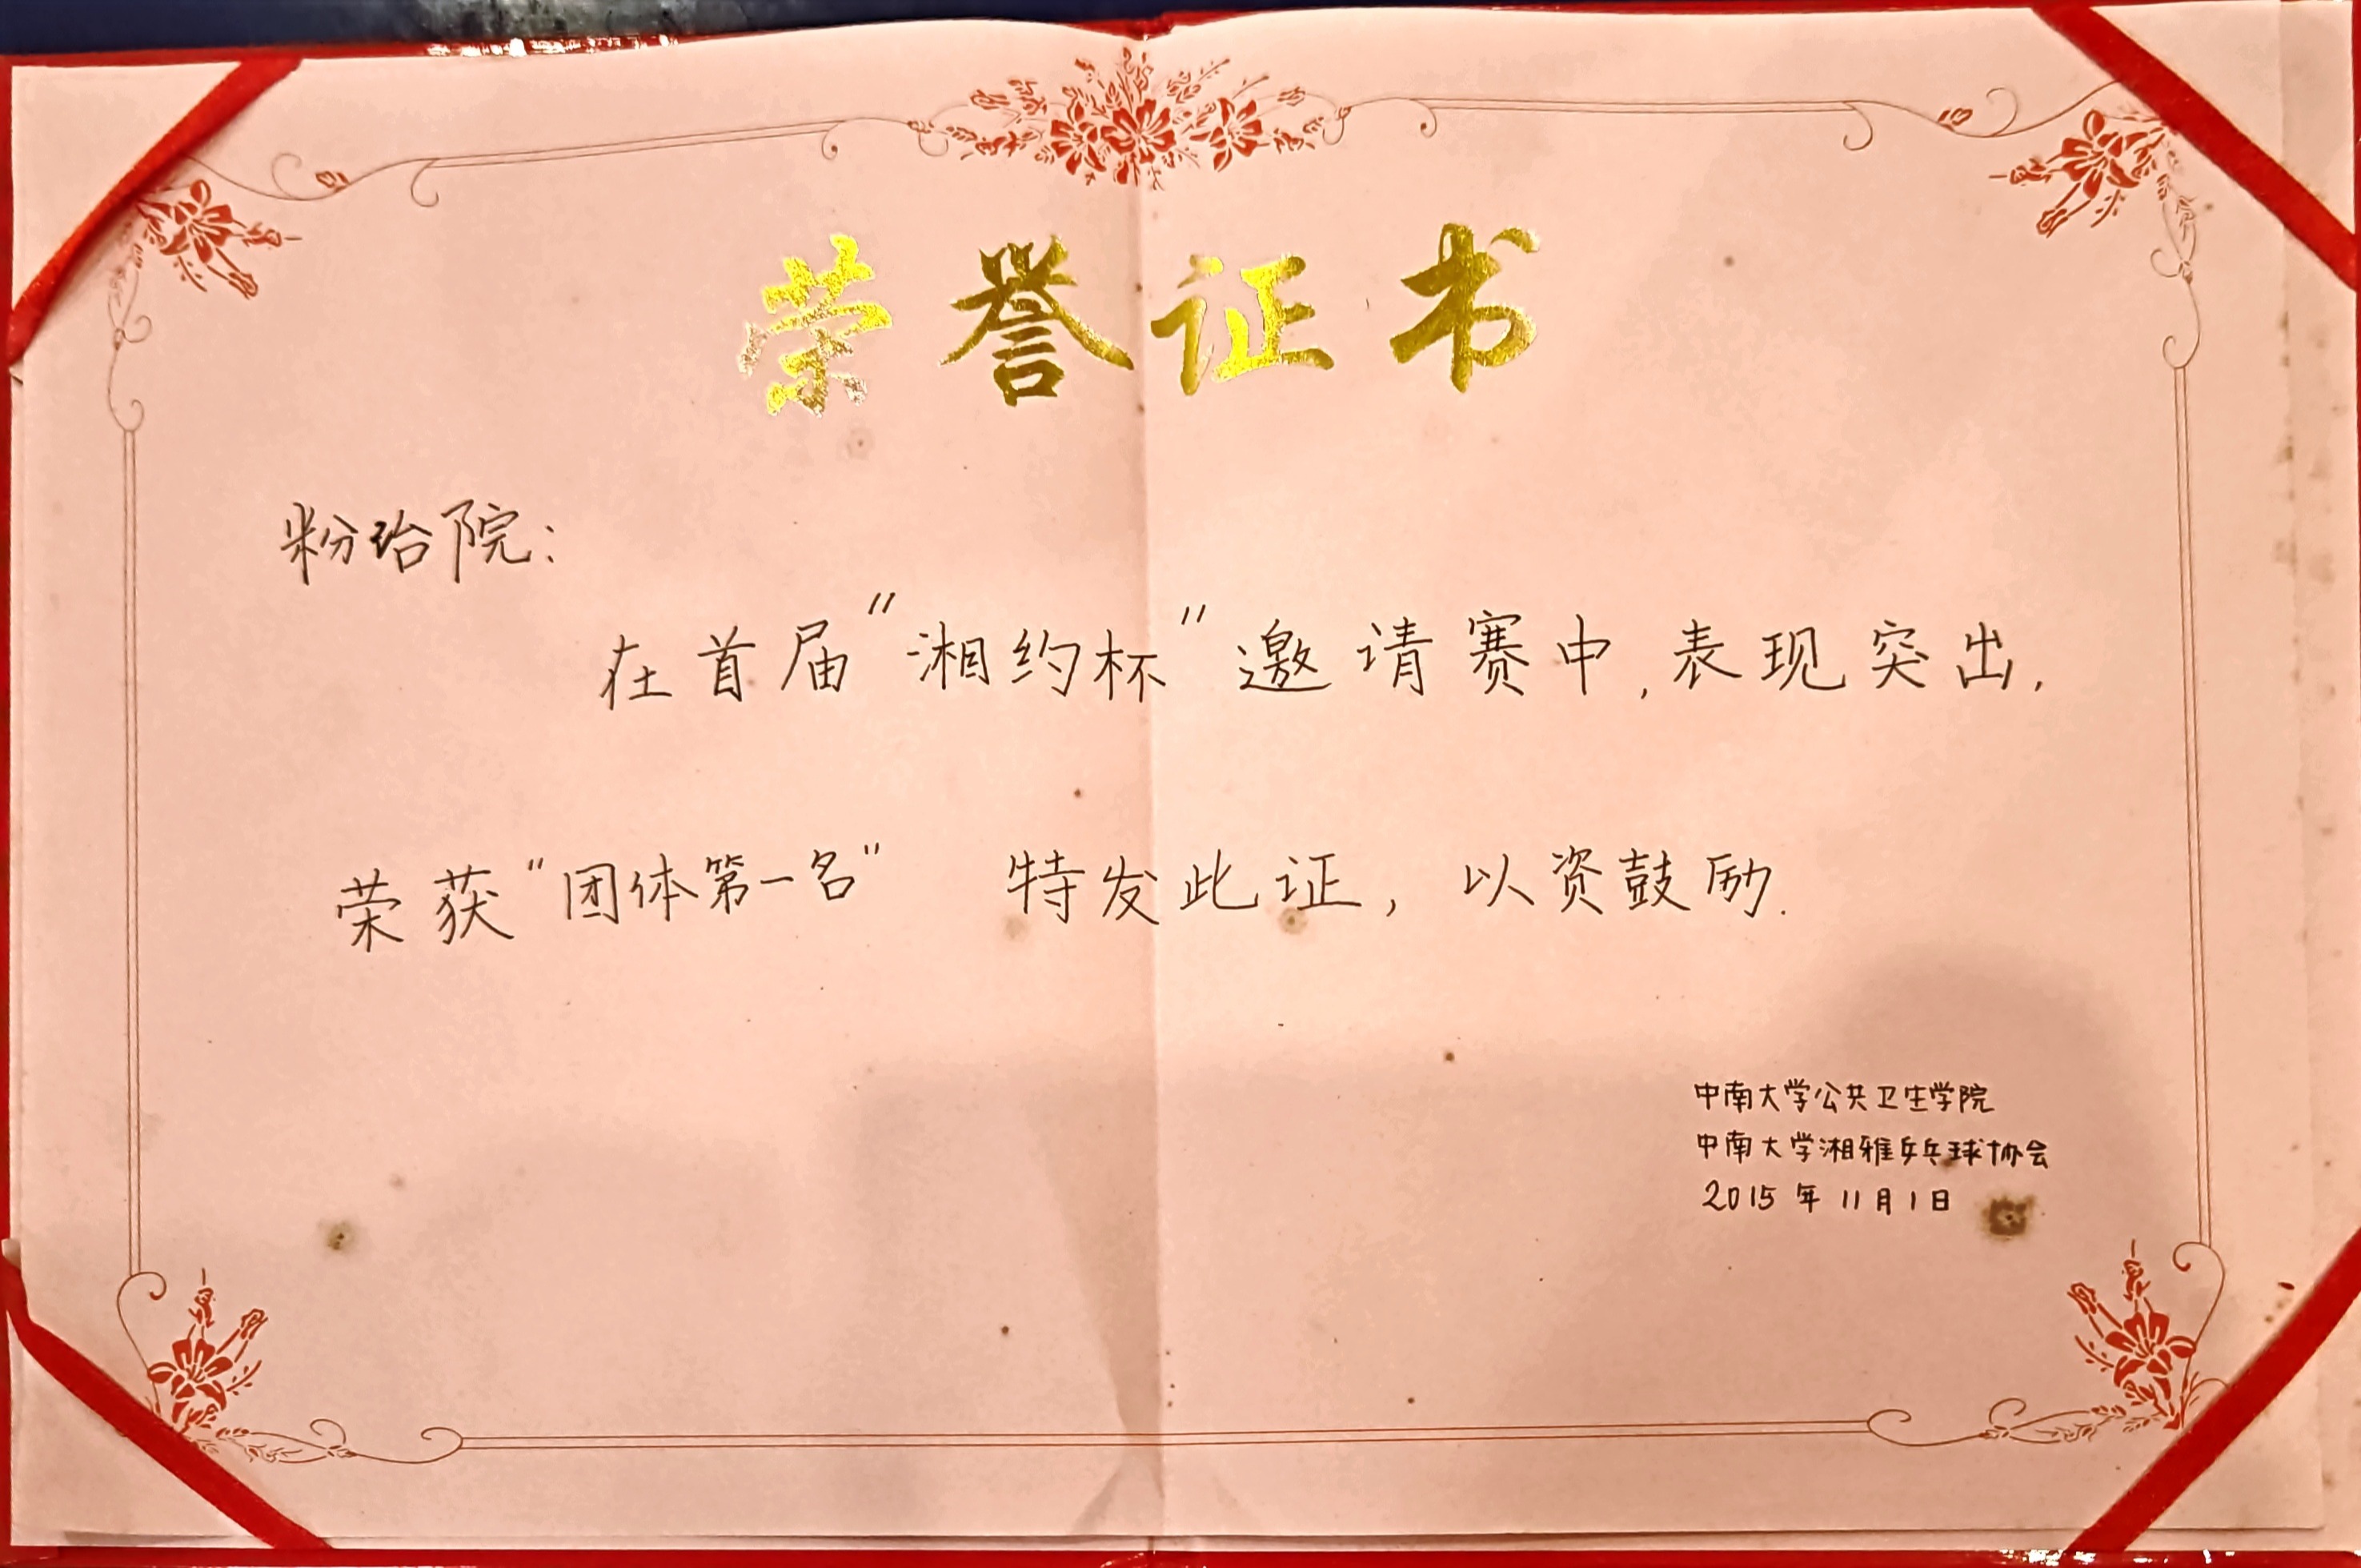 荣誉证书
粉冶院：
在首届“湘约杯”邀请赛中，表现突出，
荣获“团体第一名” 特发此证，以资鼓励.
中南大学公共卫生学院
中南大学湘雅乒乓球协会
2015年11月1日